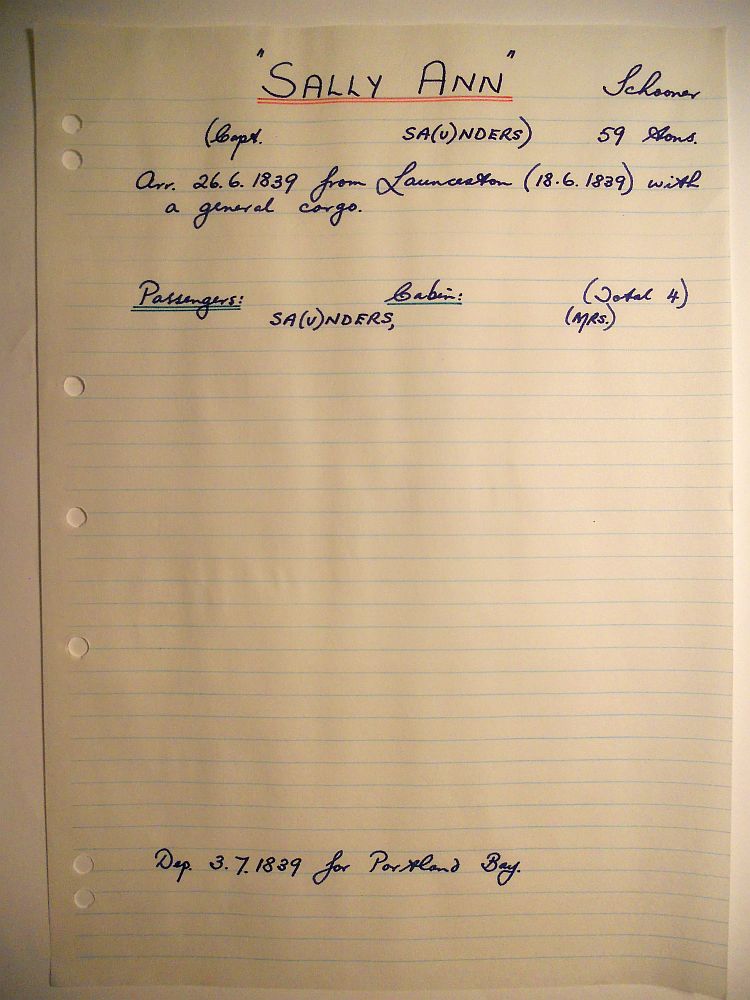 "SALLY ANN" Schooner
(Capt. SA(U)NDERS) 59 tons.
Arr. 26.6.1839 from Launceston (18.6.1839) with
a general cargo.
Passengers: Cabin: (Total 4)
SA(U)NDERS, (MRS.)
Dep. 3.7.1839 for Portland Bay.